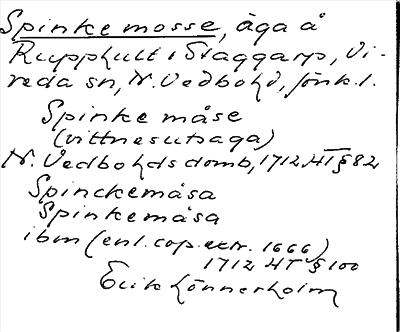 Spinkemosse, äga å
Rupphult i Staggarp, Vi-
reda sn, N. Vedbohd, Jönk.l.
Spinke måse
(vittnesutsaga)
N. Vedbohds domb, 1712 HT § 82
Spinckemåsa
Spinkemåsa
ibm (enl. cop. extr. 1666)
1712 HT § 100
Erik Lönnerholm